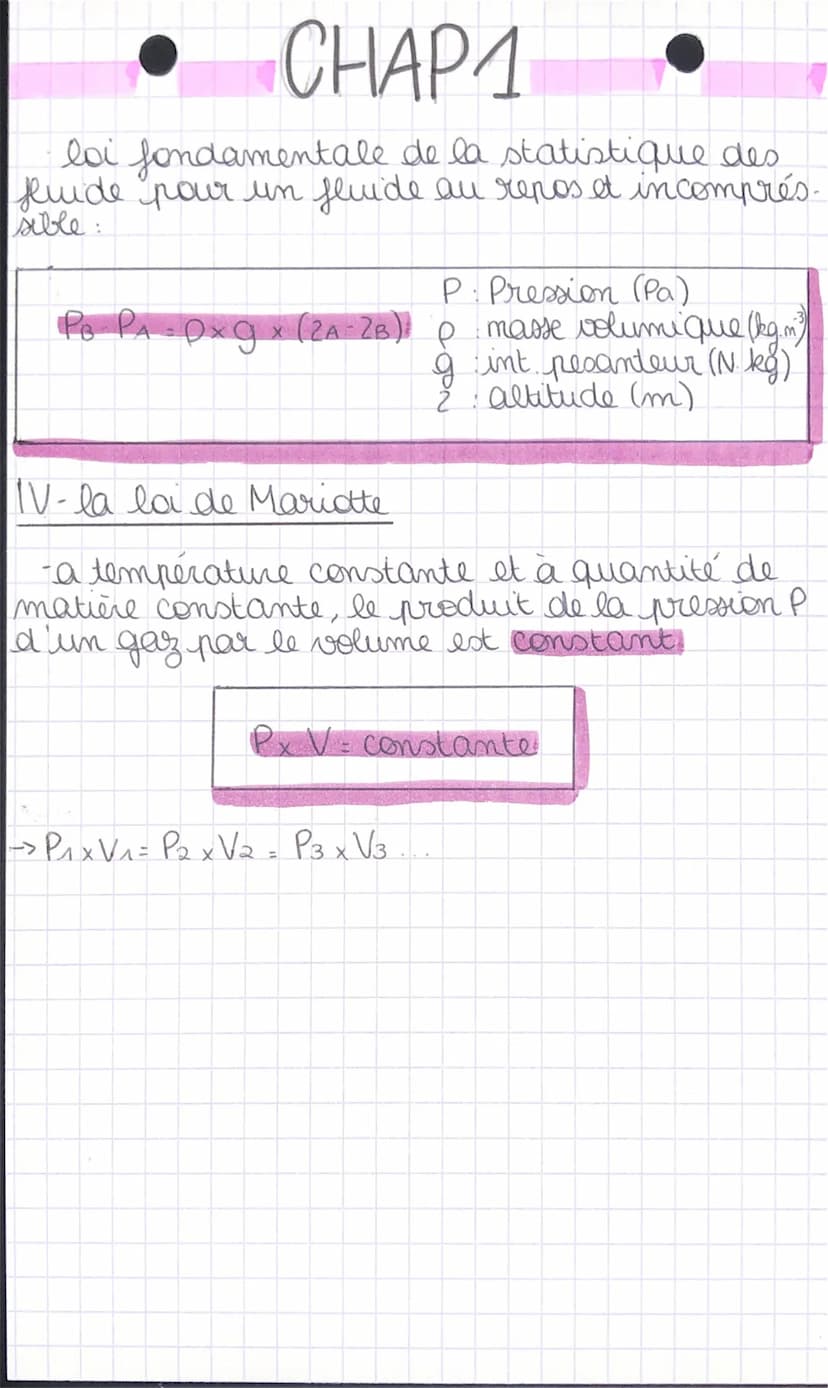 CHAP1
loi fondamentale de la statistique des
fluide pour un fluide au repos et incomprés-
sible :
P : Pression (Pa)
PB - PA = ρ x g x (zA - zB)
ρ : masse volumique (kg.m⁻³)
g : int. pesanteur (N.kg)
z : altitude (m)
IV - la loi de Mariotte
- a température constante et à quantité de
matière constante, le produit de la pression P
d'un gaz par le volume est constant
P x V = constante
→ P1 x V1 = P2 x V2 = P3 x V3 ...